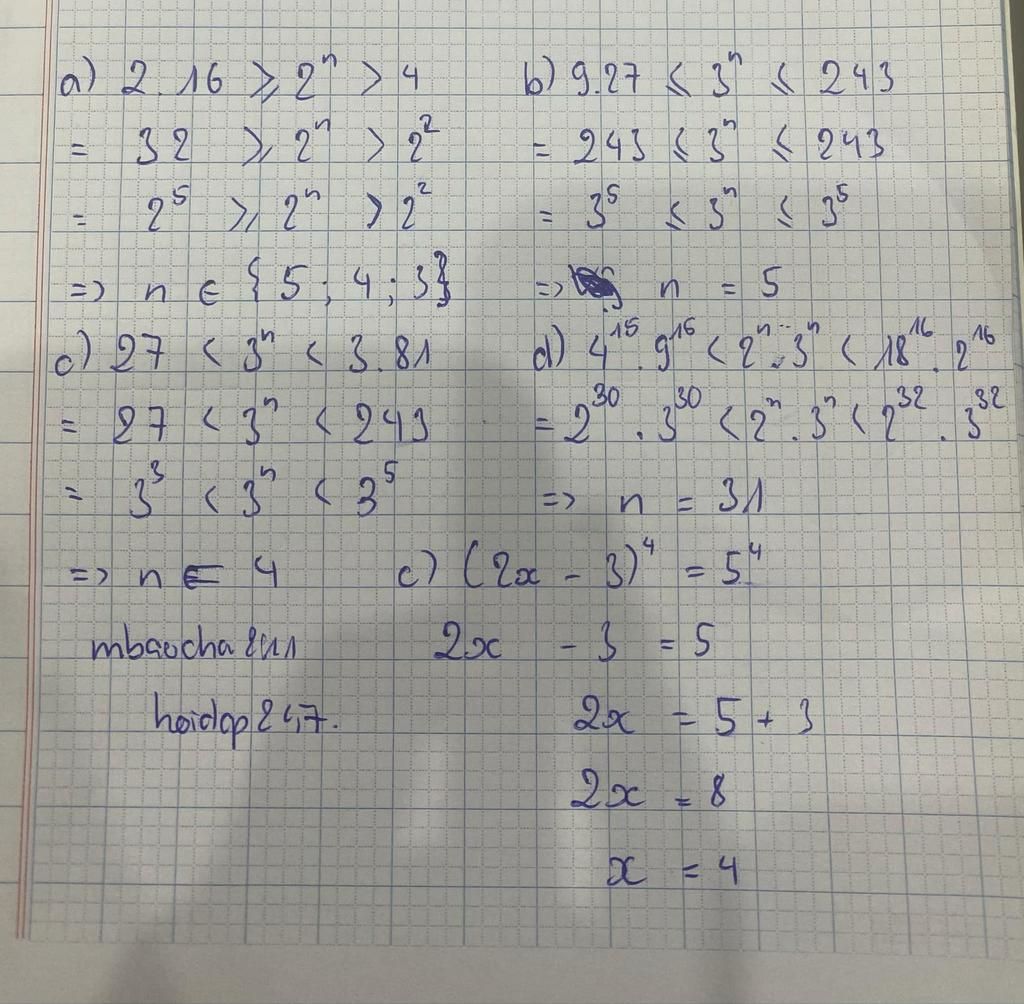 a) 2.16 ⩾ 2ⁿ > 4
= 32 ⩾ 2ⁿ > 2²
= 2⁵ ⩾ 2ⁿ > 2²
=> n ∈ {5; 4; 3}
b) 9.27 ⩽ 3ⁿ ⩽ 243
= 243 ⩽ 3ⁿ ⩽ 243
= 3⁵ ⩽ 3ⁿ ⩽ 3⁵
=> n = 5
c) 27 < 3ⁿ < 3.81
= 27 < 3ⁿ < 243
= 3³ < 3ⁿ < 3⁵
=> n = 4
d) 4¹⁵.9¹⁵ < 2ⁿ.3ⁿ < 18¹⁶.2¹⁶
= 2³⁰.3³⁰ < 2ⁿ.3ⁿ < 2³².3³²
=> n = 31
c) (2x - 3)⁴ = 5⁴
2x - 3 = 5
2x = 5 + 3
2x = 8
x = 4